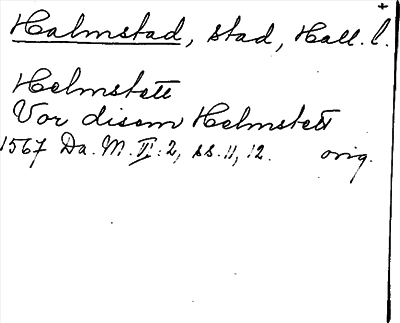 Halmstad, stad, Hall. l. +
Helmstett
Vor disem Helmstett
1567 Da. M. VI:2, ss. 11, 12. orig.